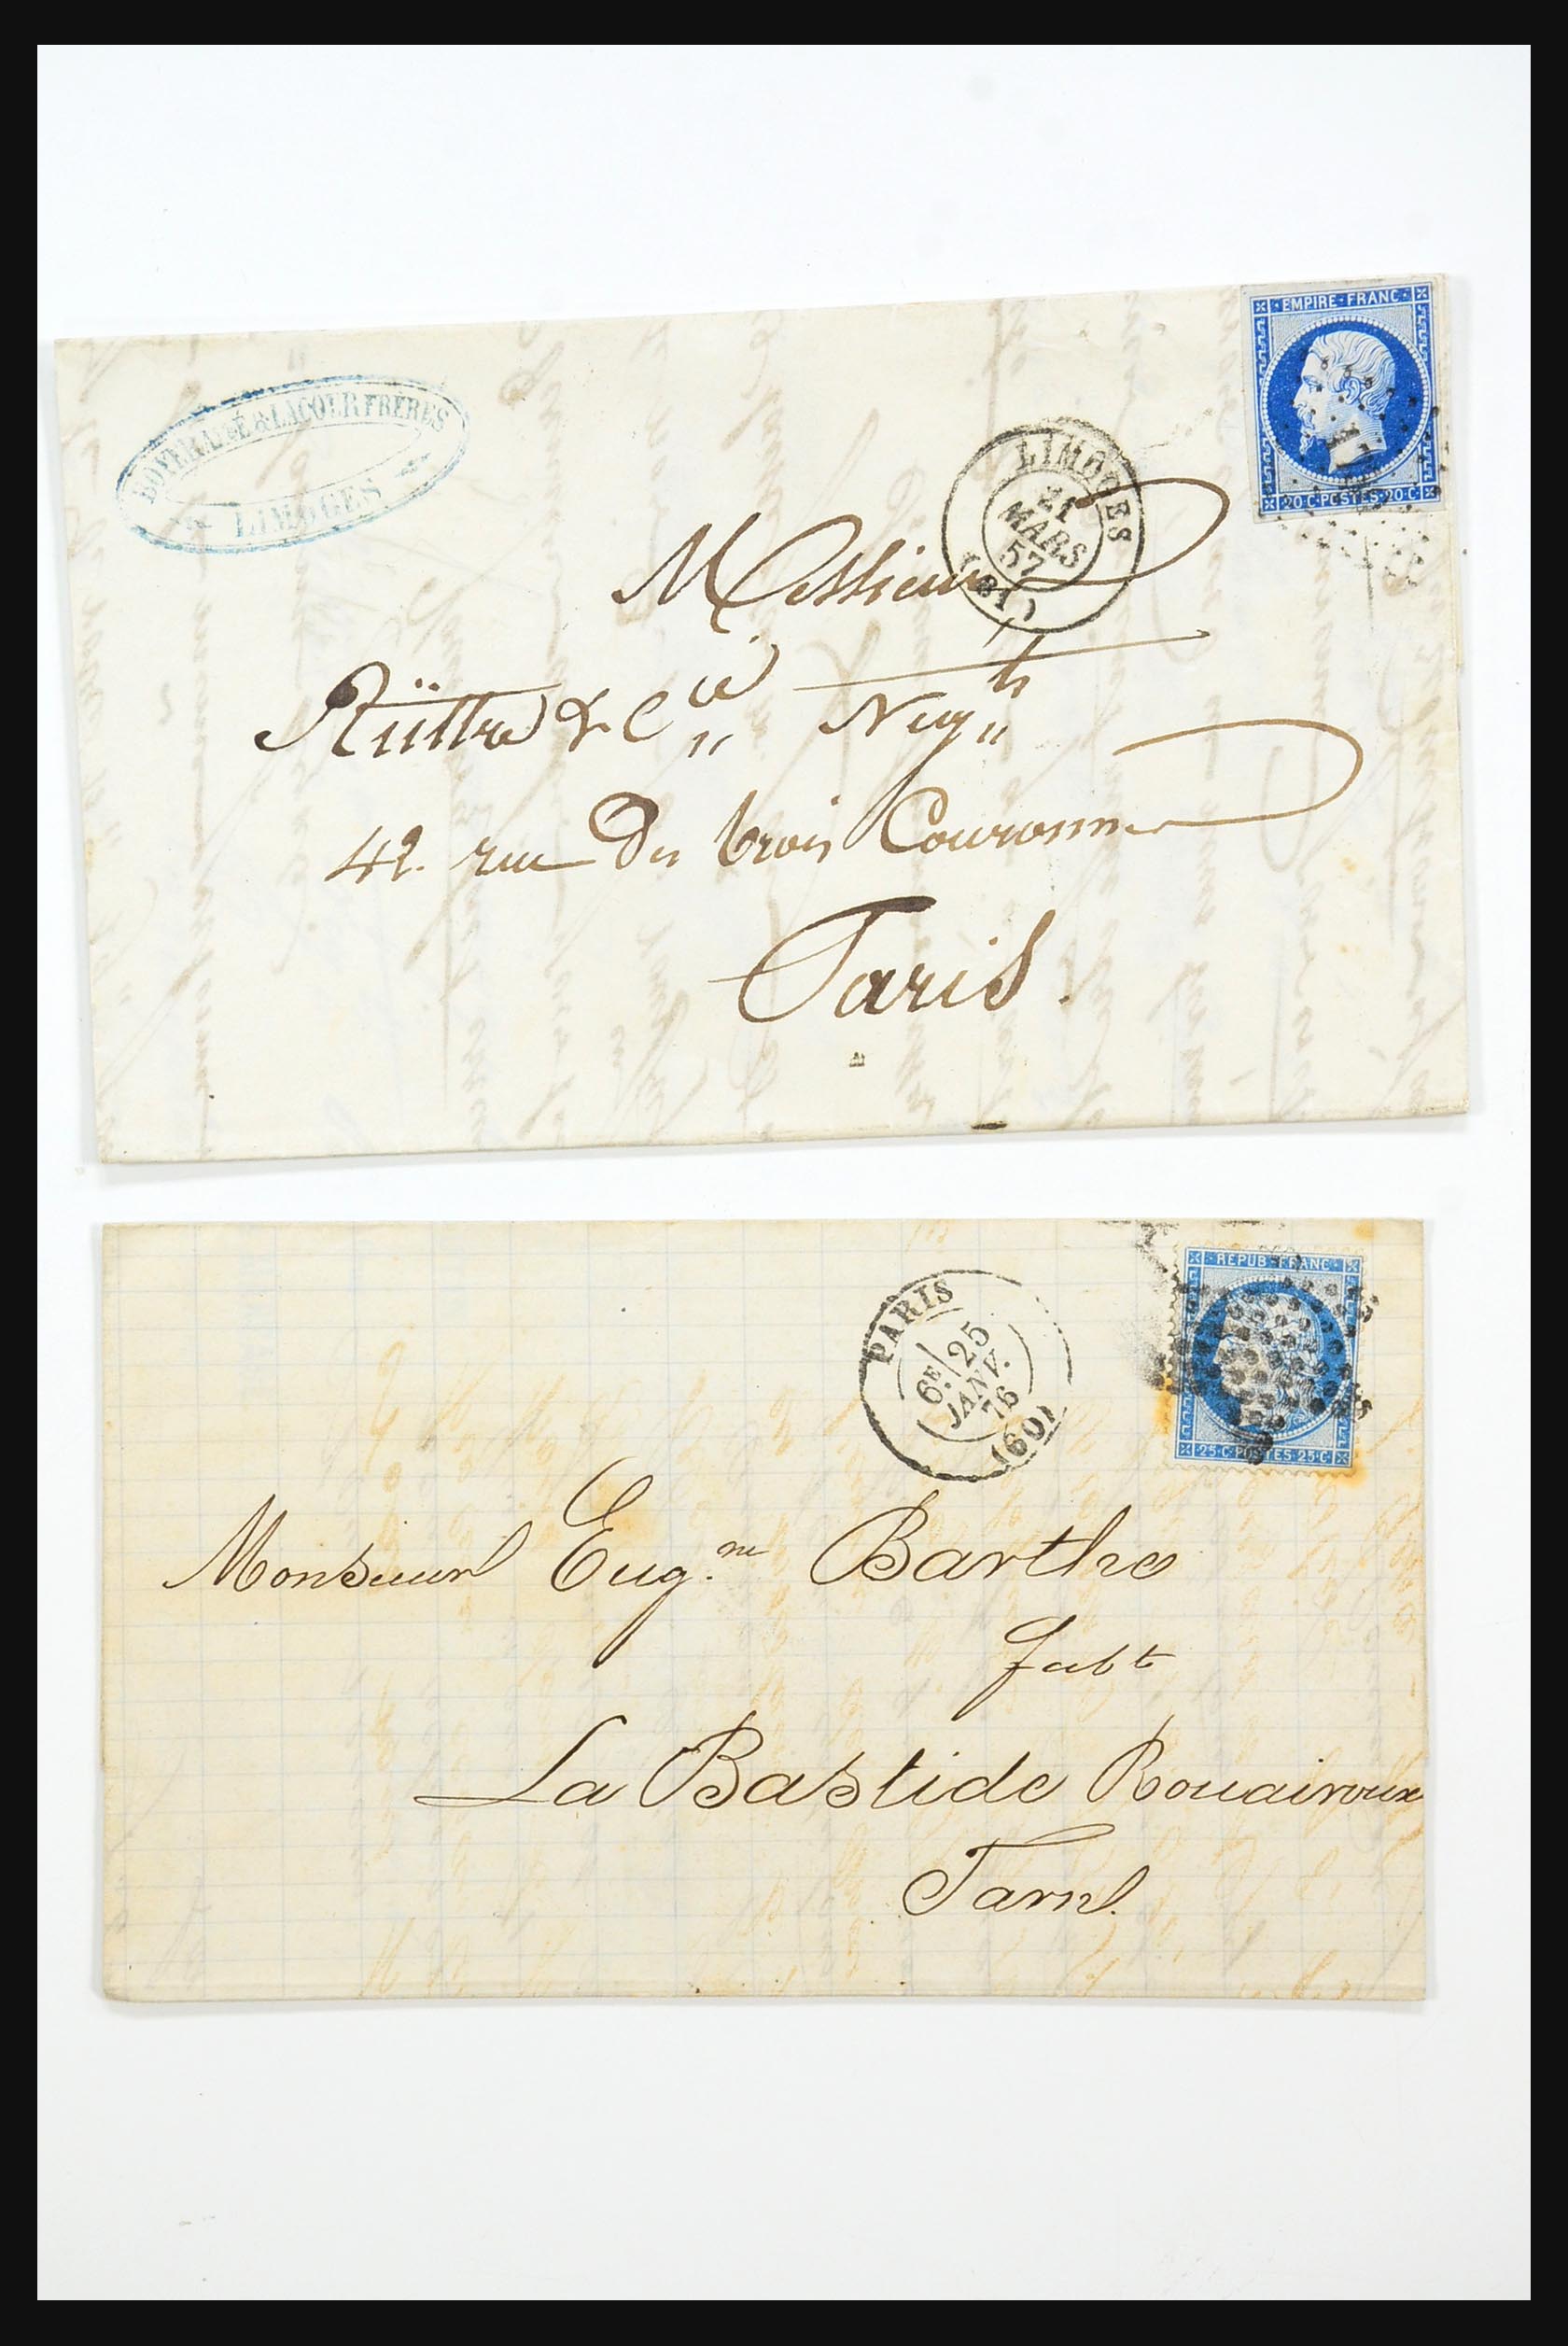 BOYER AINÉ & LACOUR FRÈRES
LIMOGES
EMPIRE·FRANC·
20·C·POSTES·20·C·
LIMOGES
21
MARS
57
(81)
Messieurs
& Cie Negts
42. rue des trois Couronnes
Paris.
REPUB·FRANC·
25·C·POSTES·25·C·
PARIS
6E 25
JANV.
76
(60)
Monsieur Eug.ne Barthe
fabt
La Bastide Rouairoux
Tarn.